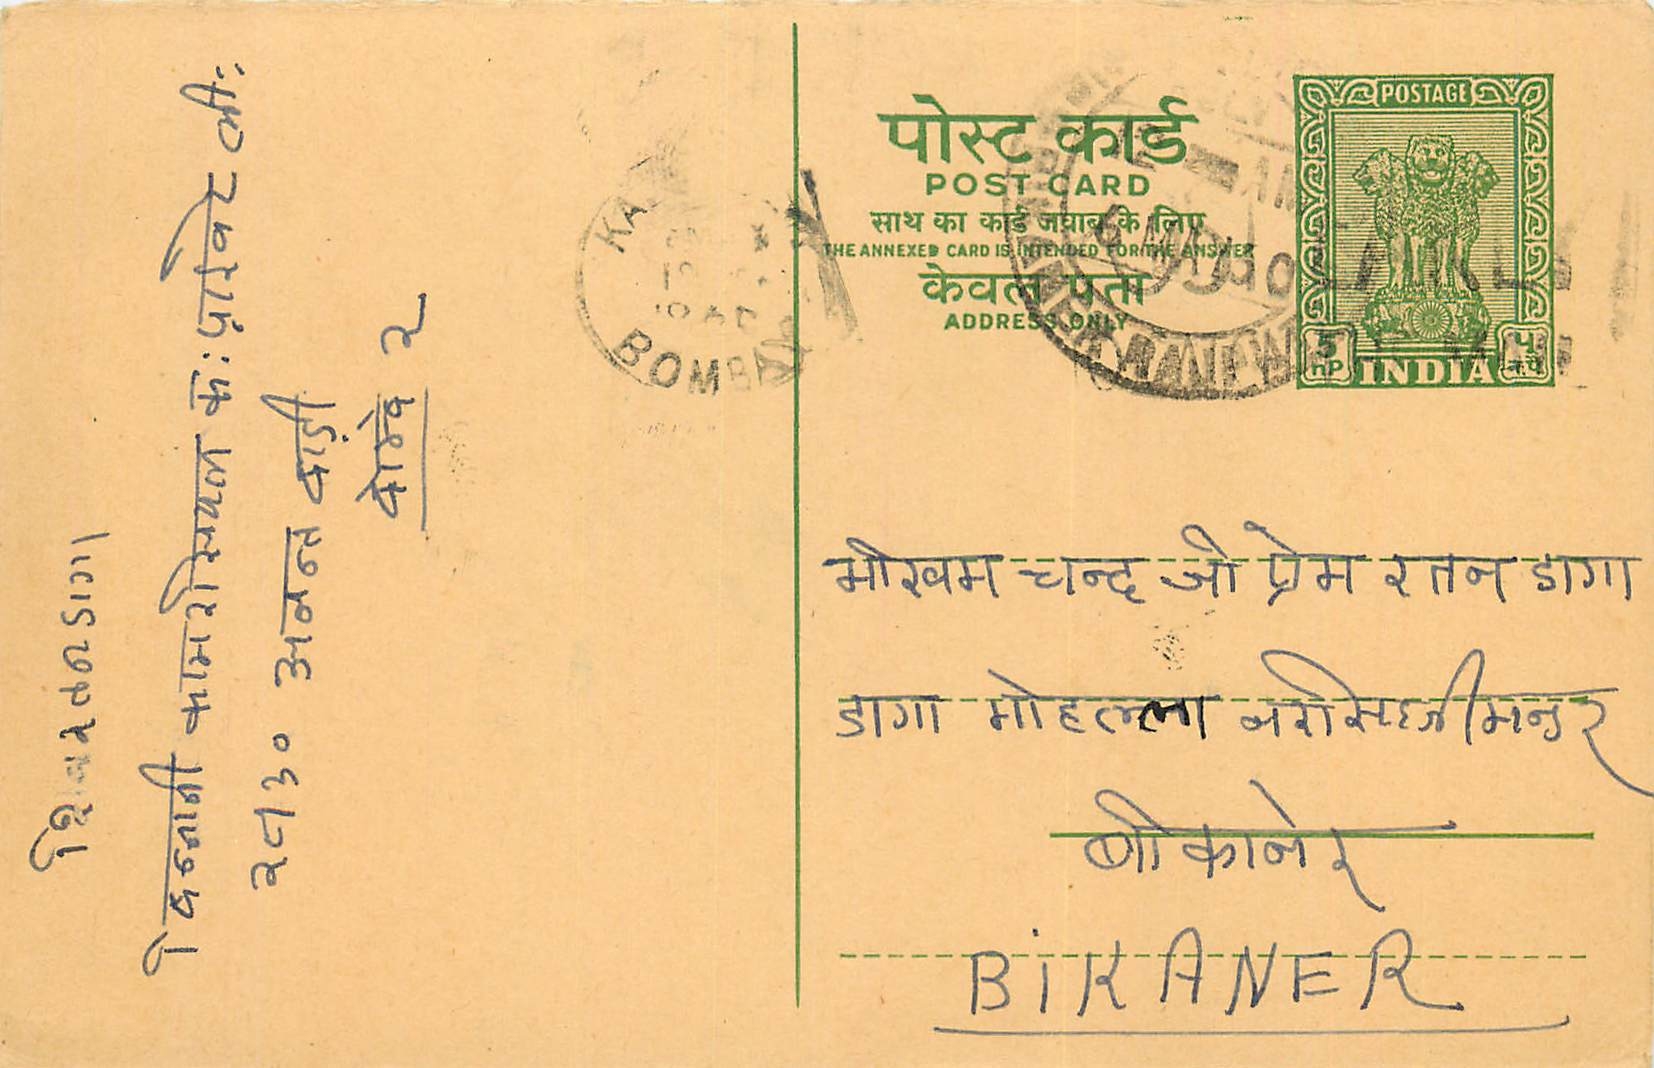 शिवरतन डागा
बिन्नानी कामरशियल कं: प्राईवेट ली:
२८१३० अनन्त वाड़ी
बोम्बे २
KA
BOMBAY
पोस्ट कार्ड
POST CARD
साथ का कार्ड जवाब के लिए
THE ANNEXED CARD IS INTENDED FOR THE ANSWER
केवल पता
ADDRESS ONLY
POSTAGE
5 nP
५ न.पै
INDIA
भीखम चन्द जी प्रेम रतन डागा
डागा मोहल्ला
बीकानेर
BIKANER